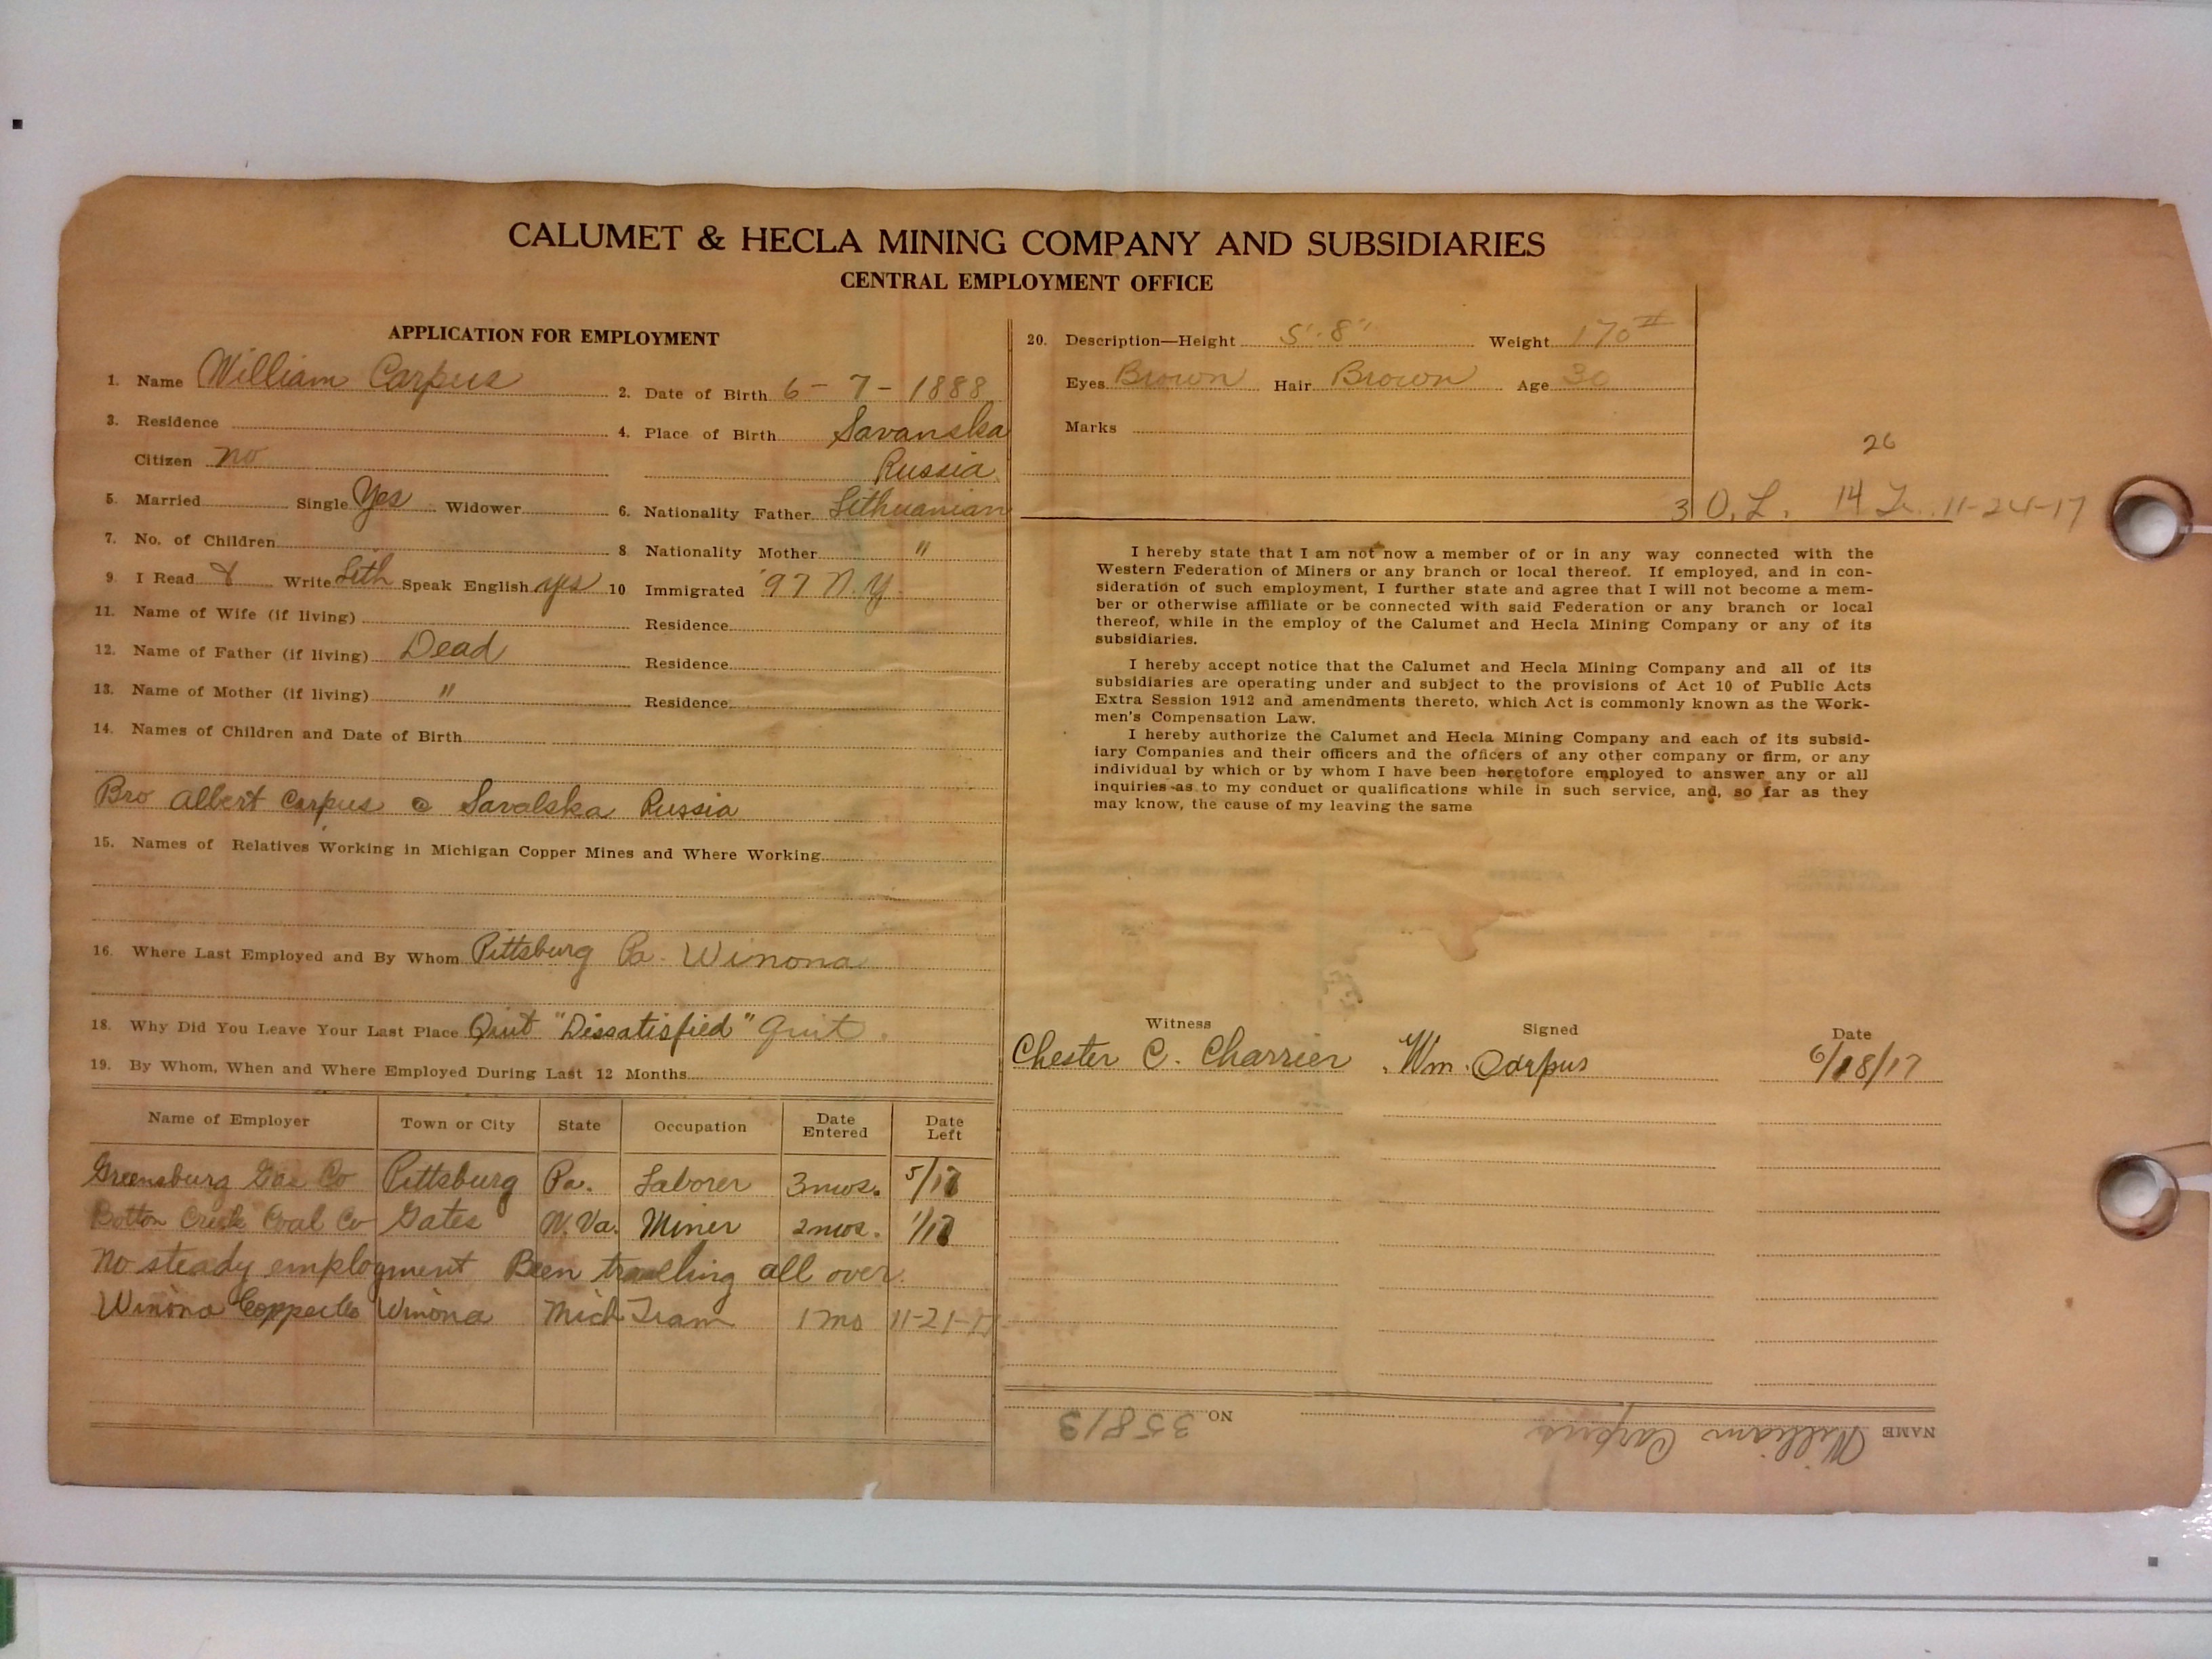 CALUMET & HECLA MINING COMPANY AND SUBSIDIARIES
CENTRAL EMPLOYMENT OFFICE
APPLICATION FOR EMPLOYMENT
1. Name William Carpus 2. Date of Birth 6-7-1888
3. Residence 4. Place of Birth Savanska
Citizen no Russia
5. Married Single Yes Widower 6. Nationality Father Lithuanian
7. No. of Children 8 Nationality Mother "
9. I Read & Write Lith Speak English yes 10 Immigrated '97 N.Y.
11. Name of Wife (if living) Residence
12. Name of Father (if living) Dead Residence
13. Name of Mother (if living) " Residence
14. Names of Children and Date of Birth
Bro Albert Carpus @ Savalska Russia
15. Names of Relatives Working in Michigan Copper Mines and Where Working
16. Where Last Employed and By Whom Pittsburg Pa. Winona
18. Why Did You Leave Your Last Place Quit "Dissatisfied" Quit.
19. By Whom, When and Where Employed During Last 12 Months
Name of Employer Town or City State Occupation Date Entered Date Left
Greensburg Gas Co Pittsburg Pa. Laborer 3 mos. 5/17
Creek Coal Co Gates W. Va. Miner 2 mos. 1/17
No steady employment Been travelling all over.
Winona Copper Co Winona Mich Tram 1 mo 11-21-17
20. Description—Height 5'-8" Weight 170
Eyes Brown Hair Brown Age 30
Marks
26
3 O.L. 14 11-24-17
I hereby state that I am not now a member of or in any way connected with the
Western Federation of Miners or any branch or local thereof. If employed, and in con-
sideration of such employment, I further state and agree that I will not become a mem-
ber or otherwise affiliate or be connected with said Federation or any branch or local
thereof, while in the employ of the Calumet and Hecla Mining Company or any of its
subsidiaries.
I hereby accept notice that the Calumet and Hecla Mining Company and all of its
subsidiaries are operating under and subject to the provisions of Act 10 of Public Acts
Extra Session 1912 and amendments thereto, which Act is commonly known as the Work-
men's Compensation Law.
I hereby authorize the Calumet and Hecla Mining Company and each of its subsid-
iary Companies and their officers and the officers of any other company or firm, or any
individual by which or by whom I have been heretofore employed to answer any or all
inquiries as to my conduct or qualifications while in such service, and, so far as they
may know, the cause of my leaving the same
Witness Signed Date
Chester C. Charrier Wm. Carpus 6/18/17
NAME William Carpus NO 35813